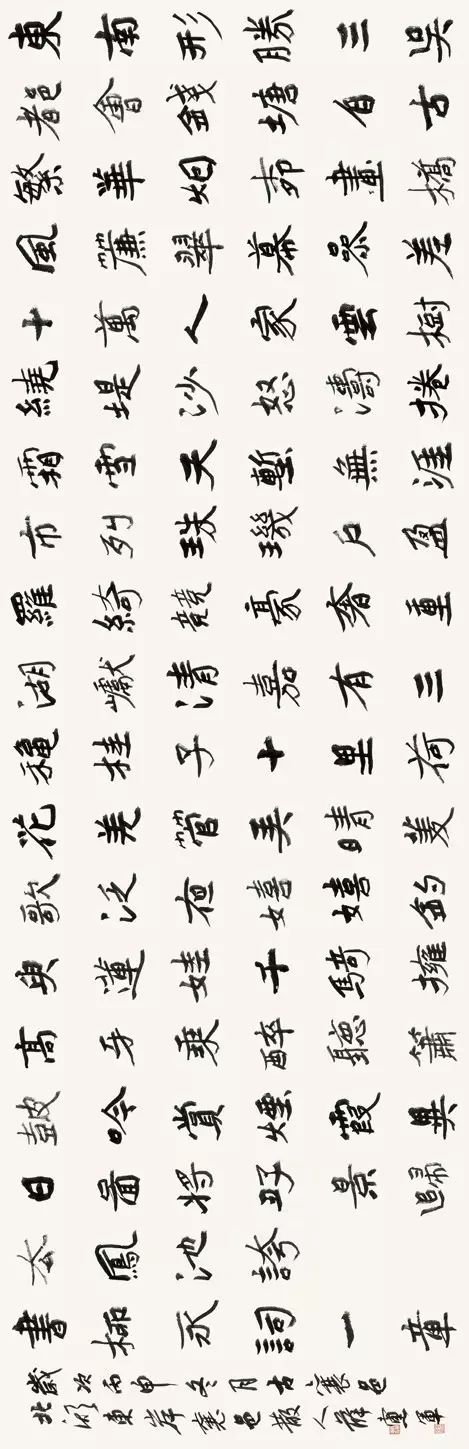 東南形勝三吳
都會錢塘自古
繁華烟柳畫橋
風簾翠幕參差
十萬人家雲樹
繞堤沙怒濤捲
霜雪天塹無涯
市列珠璣戶盈
羅綺競豪奢重
湖巘清嘉有三
穐桂子十里荷
花羌管弄晴菱
歌泛夜嬉嬉釣
叟蓮娃千騎擁
高牙乘醉聽簫
鼓吟賞煙霞異
日圖將好景歸
去鳳池誇
書柳永詞一章
歲次丙申冬月古襄邑
北湖東岸襄邑散人薛